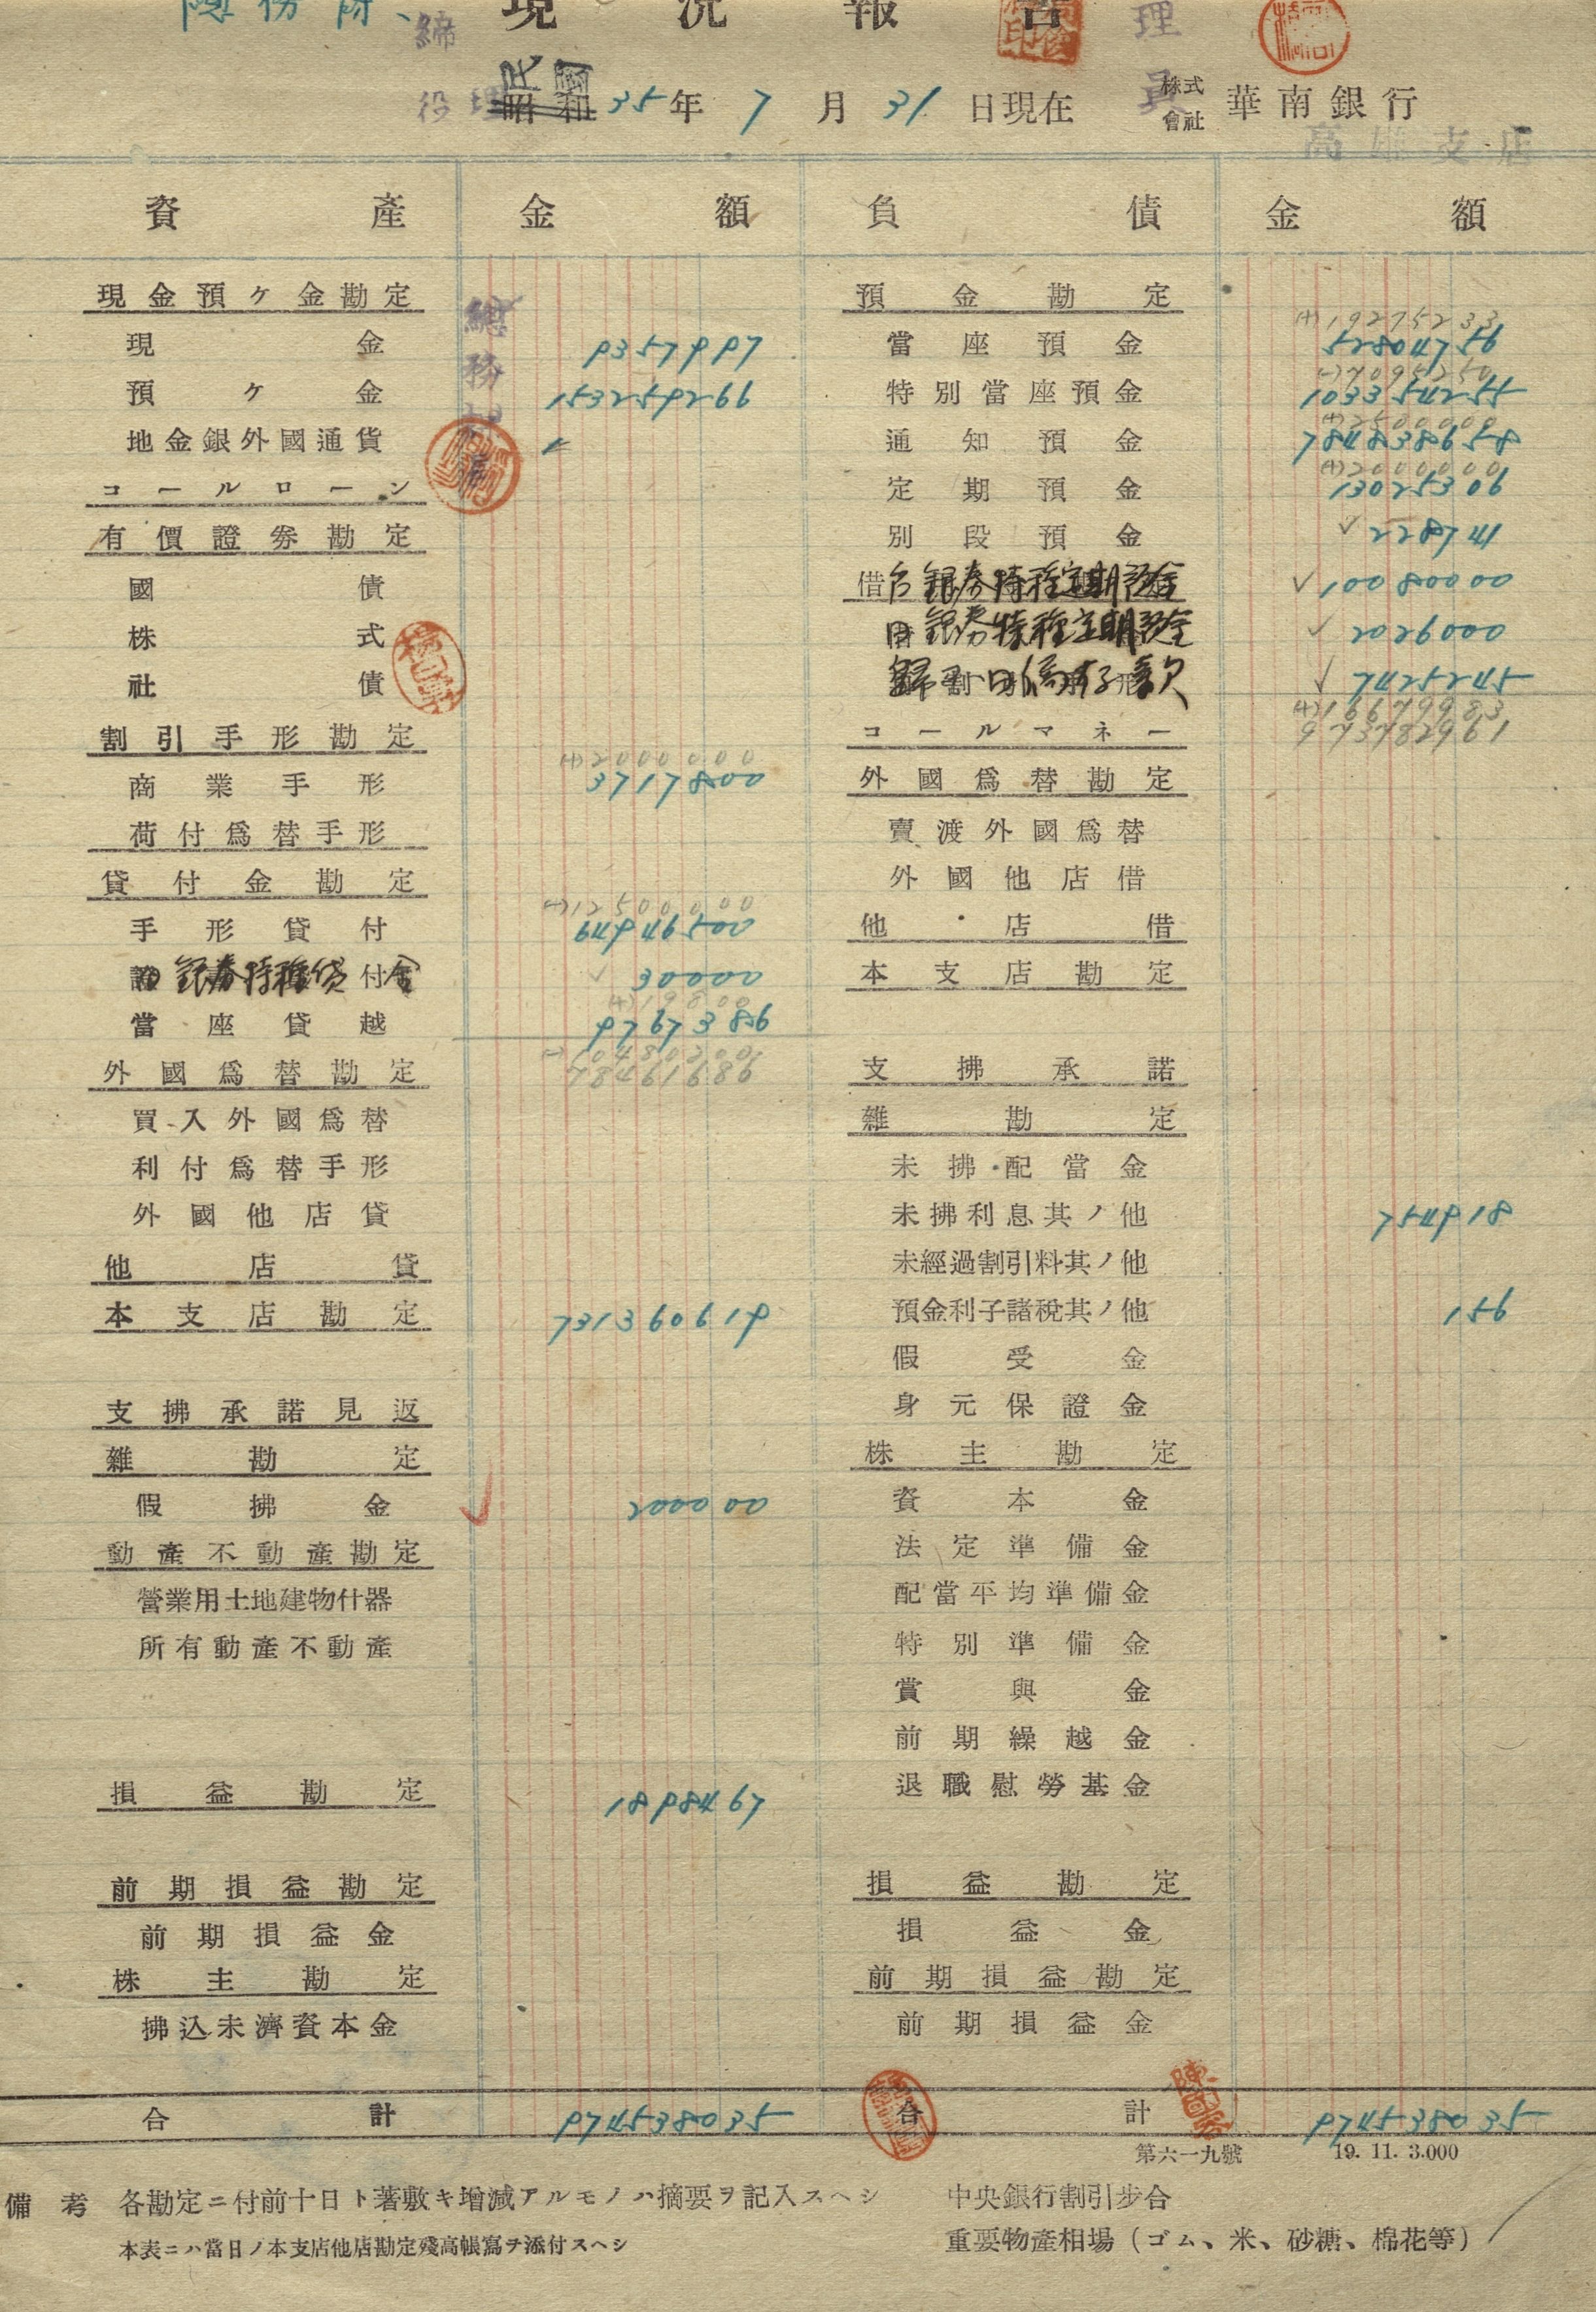 現況報告
民國
昭和 35年 7月 31日現在 株式會社 華南銀行
高雄支店
資產 金額 負債 金額
現金預ケ金勘定
現金 9357997
預ケ金 153259266
地金銀外國通貨
コールローン
有價證券勘定
國債
株式
社債
割引手形勘定
(+)2000000
商業手形 3717800
荷付爲替手形
貸付金勘定
(-)12500000
手形貸付 64946500
銀券特種貸付金 30000
(+)19800
當座貸越 9767386
(-)10480200
78461686
外國爲替勘定
買入外國爲替
利付爲替手形
外國他店貸
他店貸
本支店勘定 731360619
支拂承諾見返
雜勘定
假拂金 200000
動產不動產勘定
營業用土地建物什器
所有動產不動產
損益勘定 1898467
前期損益勘定
前期損益金
株主勘定
拂込未濟資本金
合計 974538035
預金勘定
(+)19275233
當座預金 52804756
(-)7095250
特別當座預金 103354255
(+)2500000
通知預金 784838658
(+)2000000
定期預金 13025306
別段預金 228741
台銀券特種定期預金 10080000
日銀券特種定期預金 2026000
歸國日僑存款 7425245
(+)16679983
973782961
コールマネー
外國爲替勘定
賣渡外國爲替
外國他店借
他店借
本支店勘定
支拂承諾
雜勘定
未拂配當金
未拂利息其ノ他 754918
未經過割引料其ノ他
預金利子諸稅其ノ他 156
假受金
身元保證金
株主勘定
資本金
法定準備金
配當平均準備金
特別準備金
賞與金
前期繰越金
退職慰勞基金
損益勘定
損益金
前期損益勘定
前期損益金
合計 974538035
第六一九號 19. 11. 3.000
備考 各勘定ニ付前十日ト著敷キ增減アルモノハ摘要ヲ記入スヘシ
本表ニハ當日ノ本支店他店勘定殘高帳寫ヲ添付スヘシ
中央銀行割引步合
重要物產相場（ゴム、米、砂糖、棉花等）